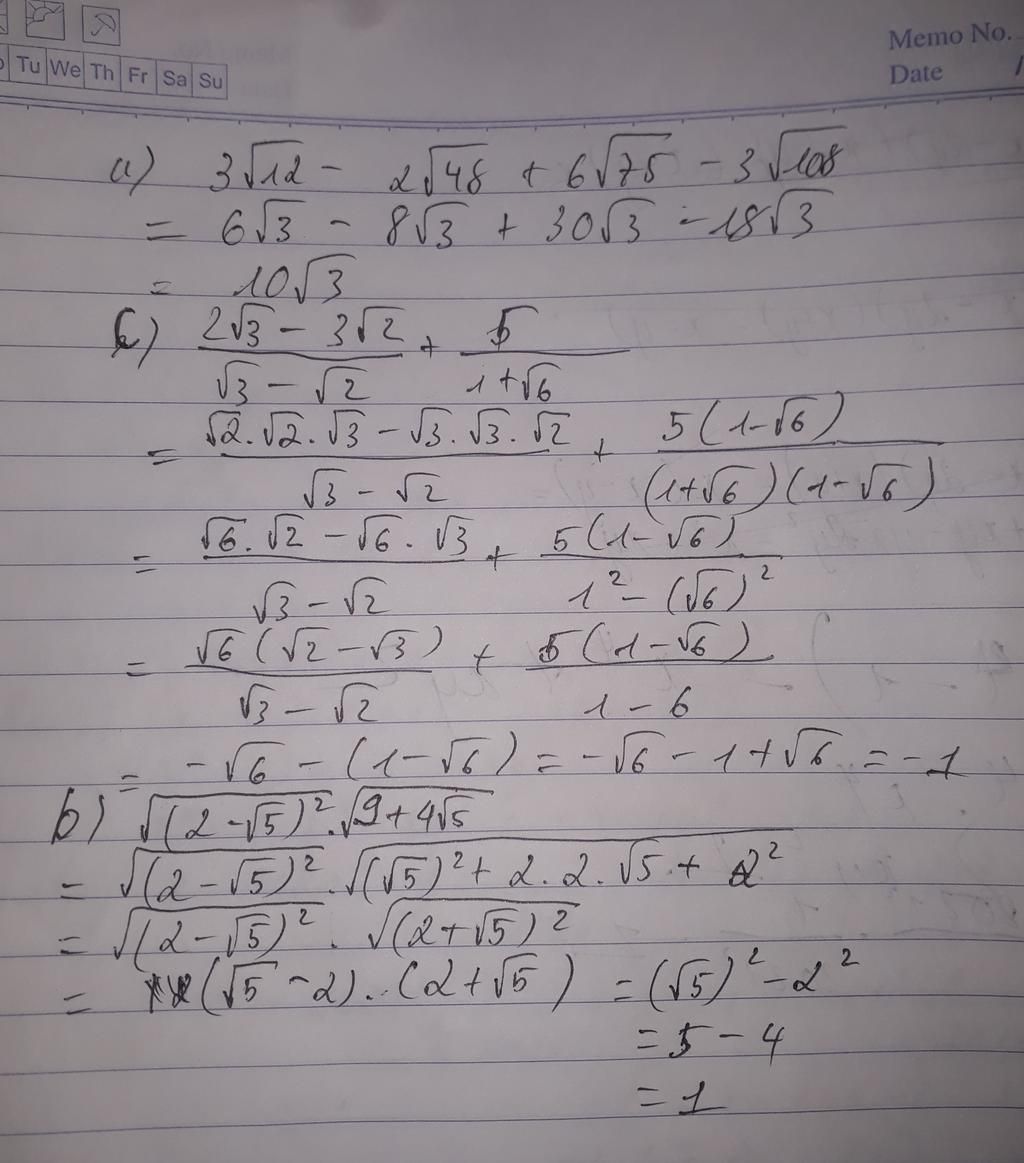 Memo No.
Tu We Th Fr Sa Su
Date /
a) 3√12 - 2√48 + 6√75 - 3√108
= 6√3 - 8√3 + 30√3 - 18√3
= 10√3
c) (2√3 - 3√2)/(√3 - √2) + 5/(1+√6)
= (√2.√2.√3 - √3.√3.√2)/(√3 - √2) + 5(1-√6)/((1+√6)(1-√6))
= (√6.√2 - √6.√3)/(√3 - √2) + 5(1-√6)/(1² - (√6)²)
= √6(√2 - √3)/(√3 - √2) + 5(1-√6)/(1 - 6)
= -√6 - (1-√6) = -√6 - 1 + √6 = -1
b) √((2-√5)²).√(9+4√5)
= √((2-√5)²).√((√5)² + 2.2.√5 + 2²)
= √((2-√5)²).√((2+√5)²)
= (√5 - 2).(2+√5) = (√5)² - 2²
= 5 - 4
= 1